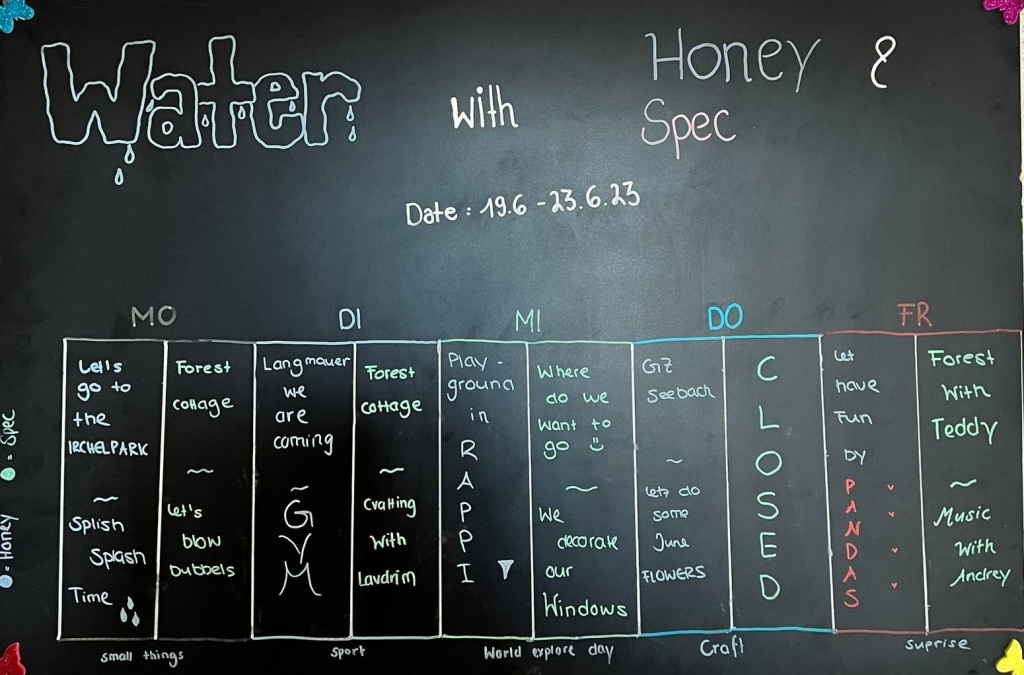 Water with Honey &
Spec
Date : 19.6 - 23.6.23
MO
Let's
go to
the
IRCHELPARK
~
Splish
Splash
Time
Forest
cottage
~
Let's
blow
Bubbels
small things
DI
Langmauer
we
are
coming
~
G
Y
M
Forest
cottage
~
Crafting
with
Lavdrim
sport
MI
Play-
ground
in
R
A
P
P
I
Where
do we
want to
go
~
We
decorate
our
Windows
World explore day
DO
GZ
Seebach
~
Let's do
some
June
FLOWERS
C
L
O
S
E
D
Craft
FR
Let
have
Fun
by
P
A
N
D
A
S
Forest
With
Teddy
~
Music
with
Andrey
suprise
= Honey = Spec